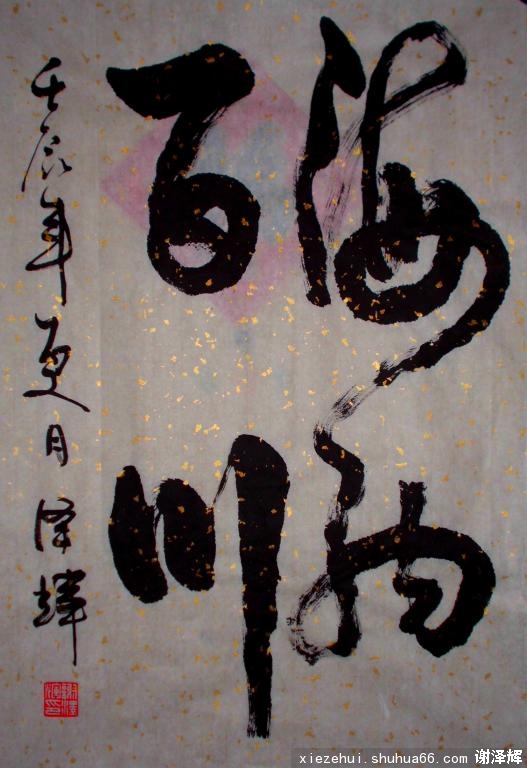 海纳
百川
壬辰年夏月泽辉
xiezehui.shuhua66.com 谢泽辉